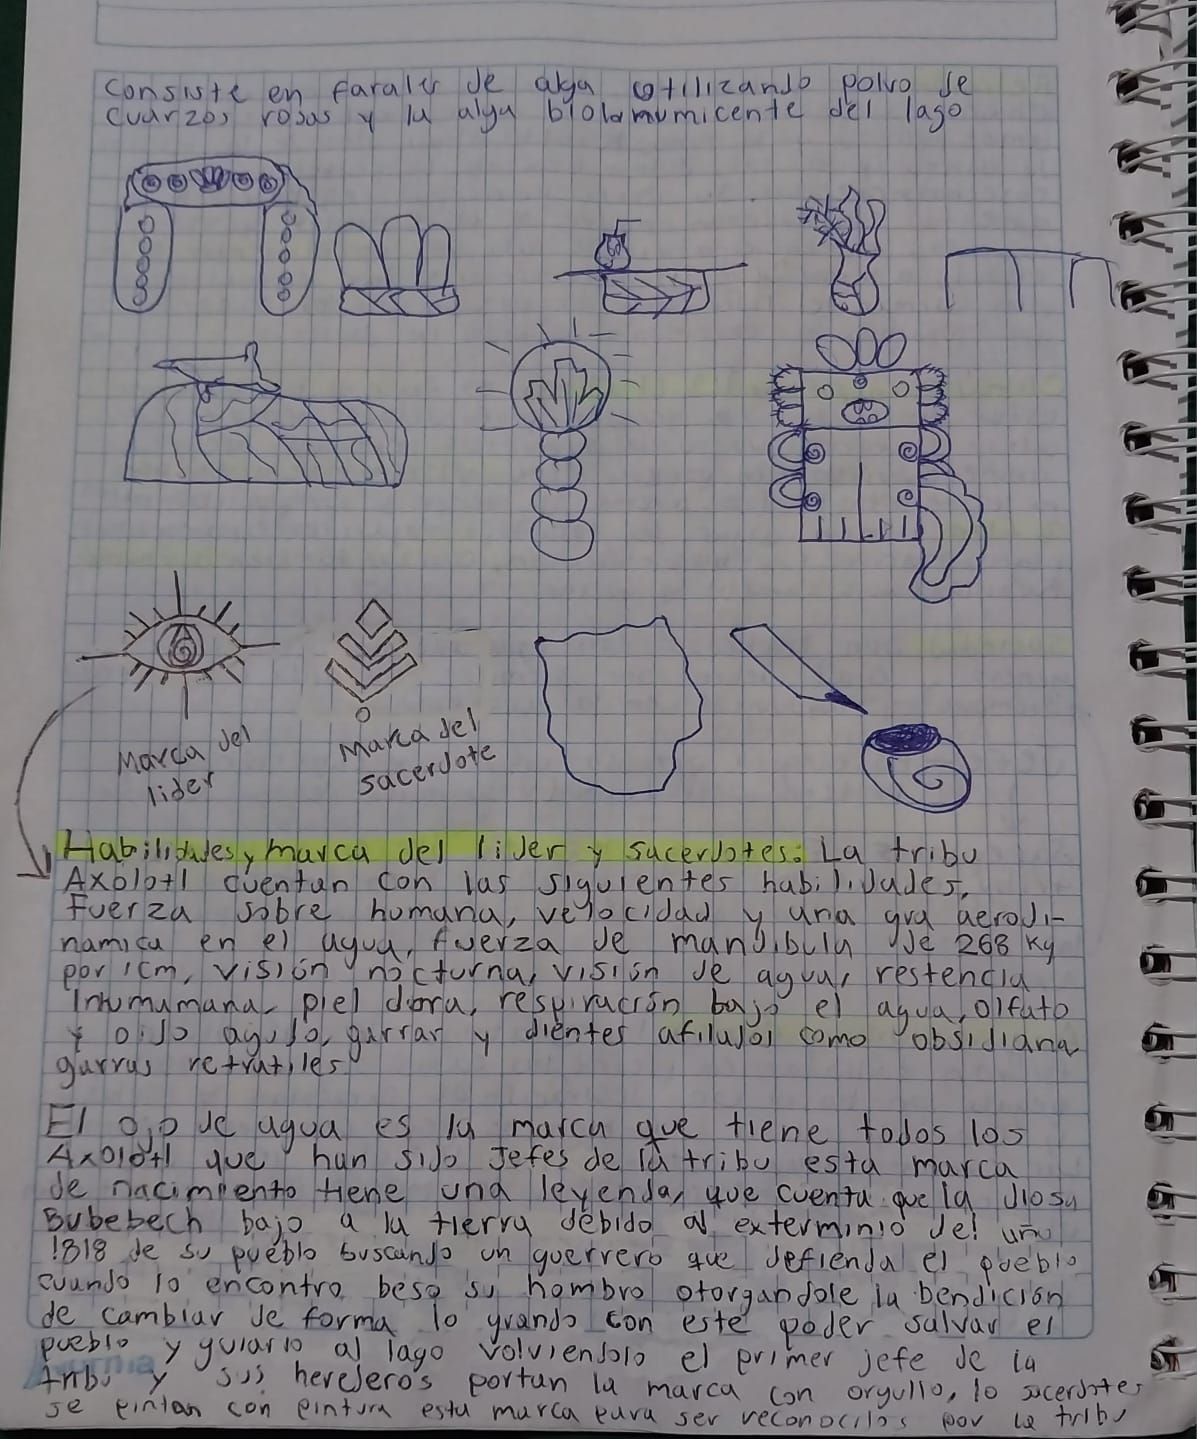 Consiste en farales de alga utilizando polvo de
cuarzos rosas y la alga biolanumicente del lago
Marca del
lider
Marca del
sacerdote
Habilidades y marca del lider y sacerdotes: La tribu
Axolotl cuentan con las siguientes habilidades,
Fuerza sobre humana, velocidad y una gra aerodi-
namica en el agua, fuerza de mandibula de 268 kg
por 1cm, visión nocturna, visión de agua, restencia
Inhumamana, piel dora, respiración bajo el agua, olfato
y oido agudo, garrar y dientes afilados como obsidiana
garras retratiles
El ojo de agua es la marca que tiene todos los
Axolotl que han sido Jefes de la tribu esta marca
de nacimiento tiene una leyenda, que cuenta que la diosa
Bubebech bajo a la tierra debido al exterminio del uño
1818 de su pueblo buscando un guerrero que defienda el pueblo
cuando lo encontro beso su hombro otorgandole la bendición
de cambiar de forma lo grando con este poder salvar el
pueblo y guiarlo al lago volviendolo el primer jefe de la
tribu y sus herederos portan la marca con orgullo, lo sacerdotes
se pintan con pintura esta marca para ser reconocidos por la tribu